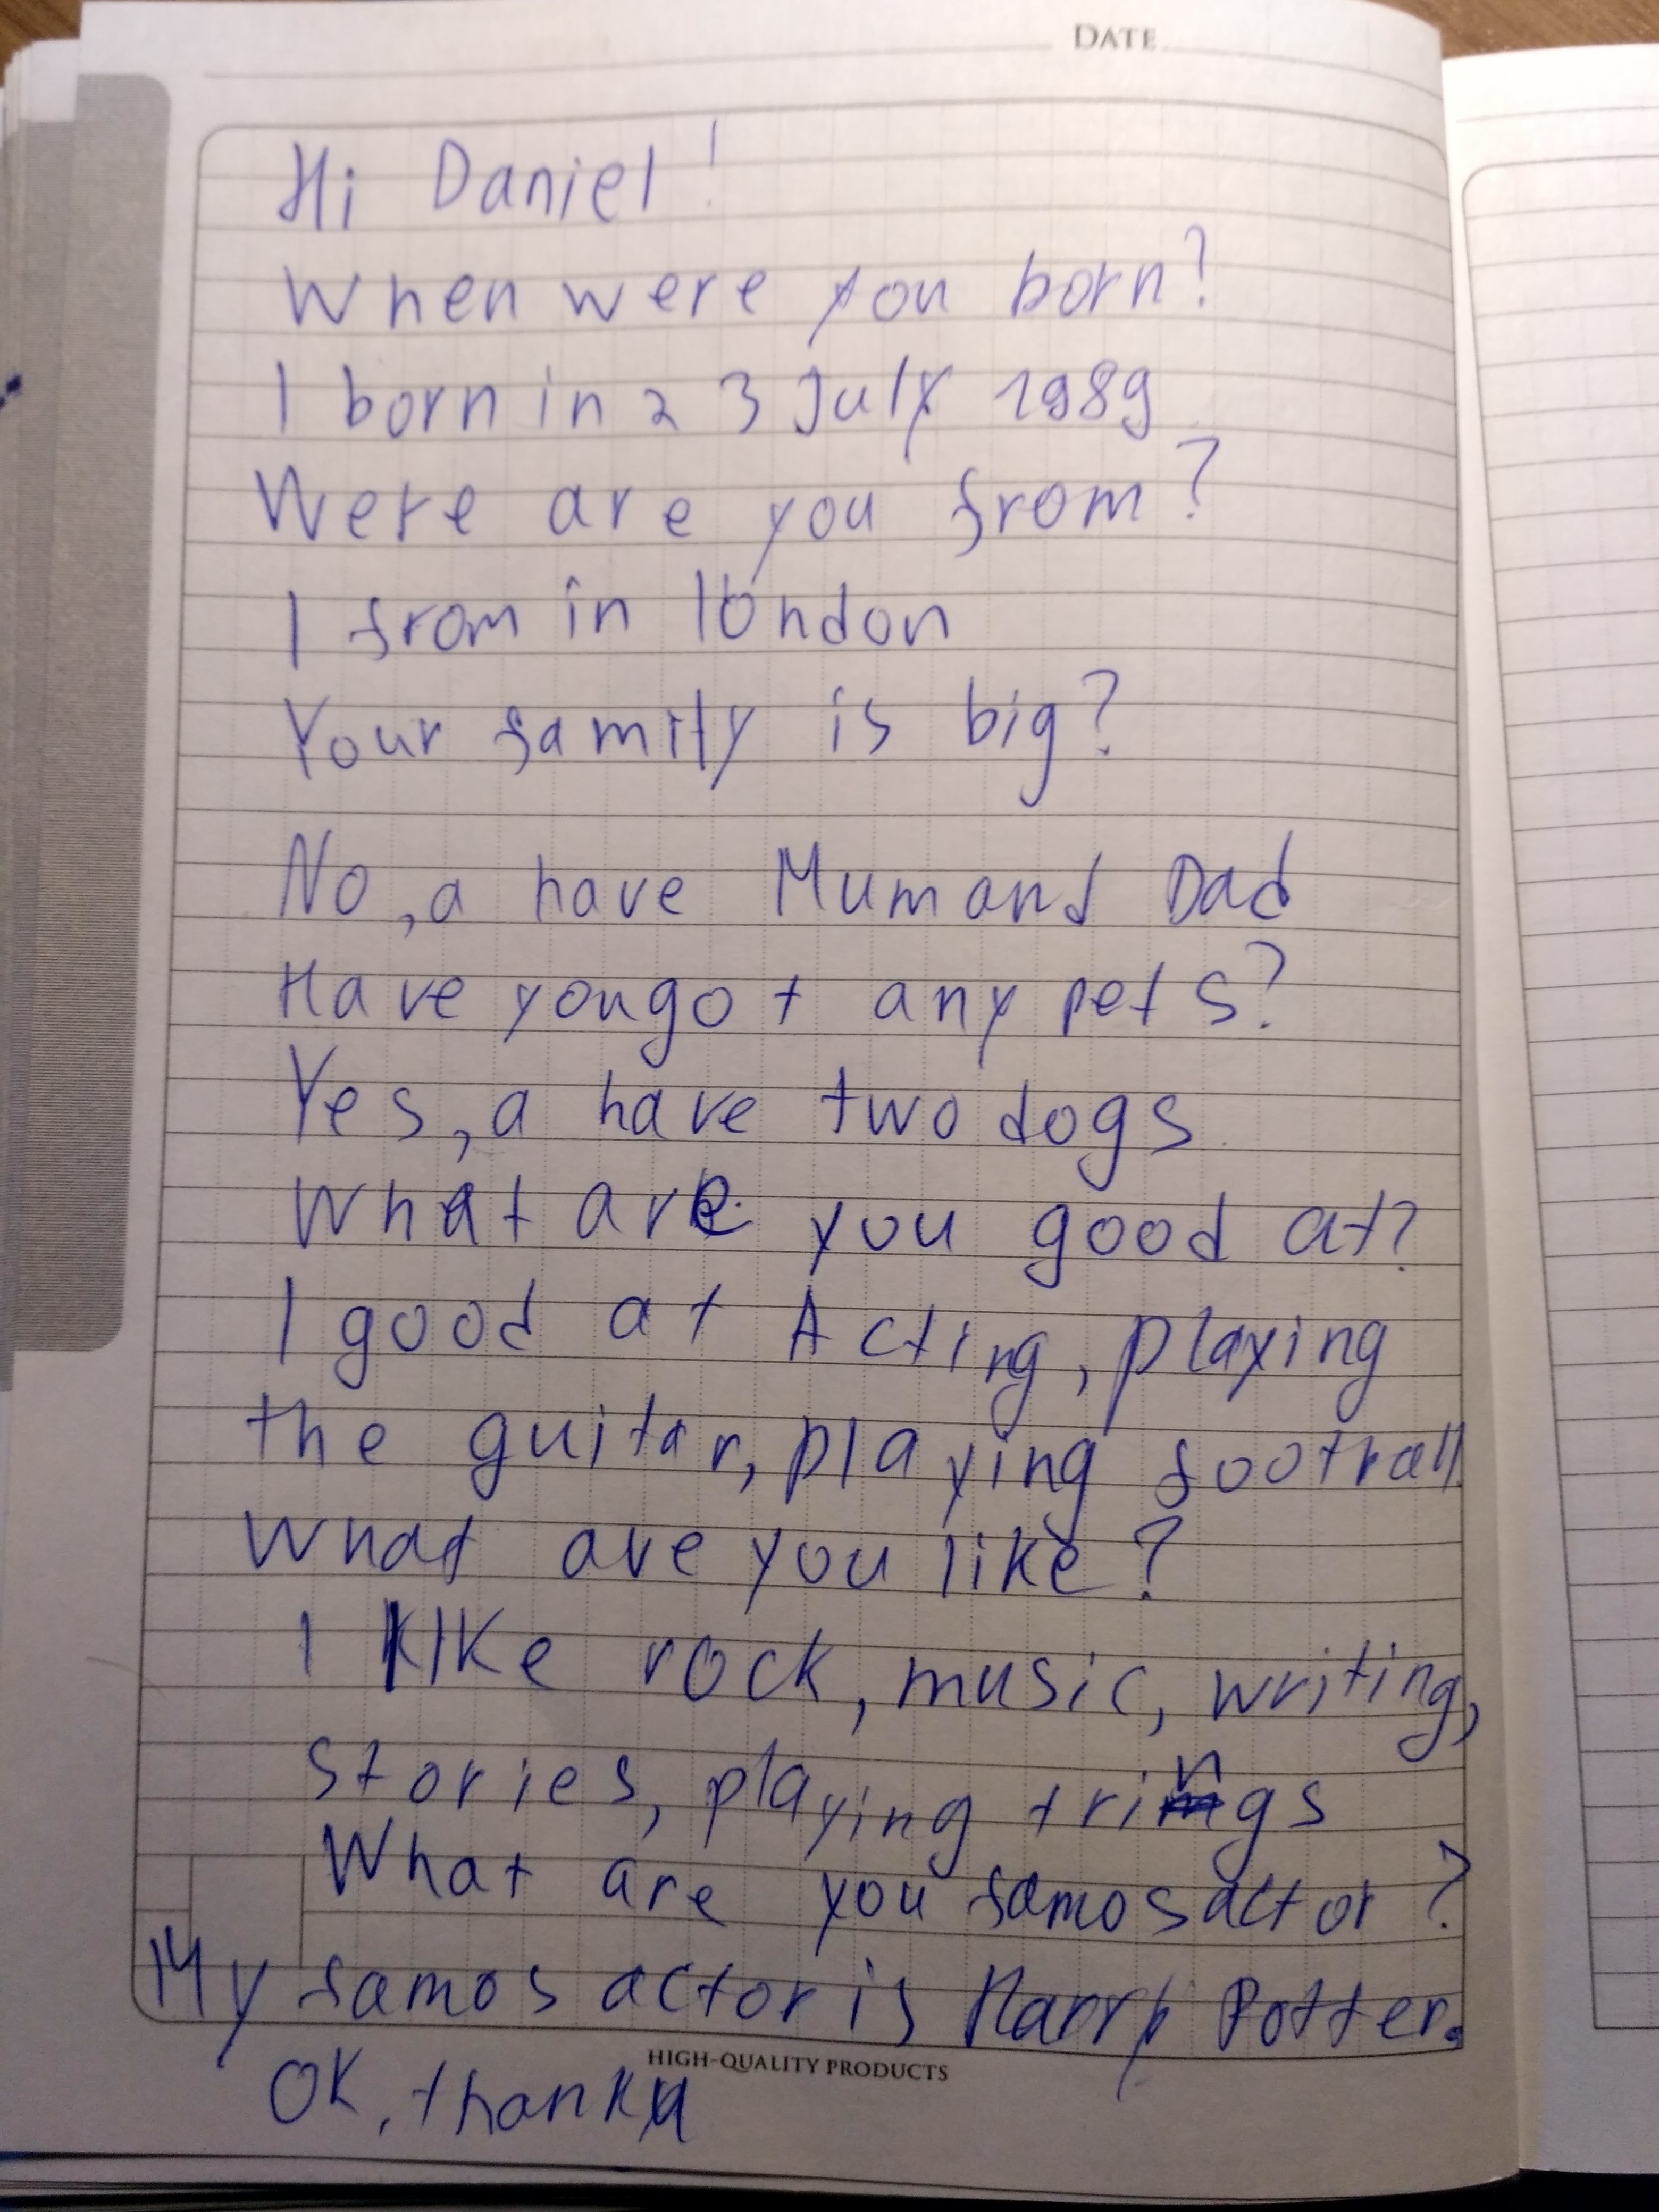 DATE
Hi Daniel!
When were you born?
I born in 23 July 1989
Were are you from?
I from in london
Your family is big?
No, a have Mum and Dad
Have you got any pets?
Yes, a have two dogs
What are you good at?
I good at Acting, playing
the guitar, playing football
What are you like?
I like rock, music, writing,
stories, playing trings
What are you famos actor?
My famos actor is Harry Potter.
HIGH-QUALITY PRODUCTS
OK, thank